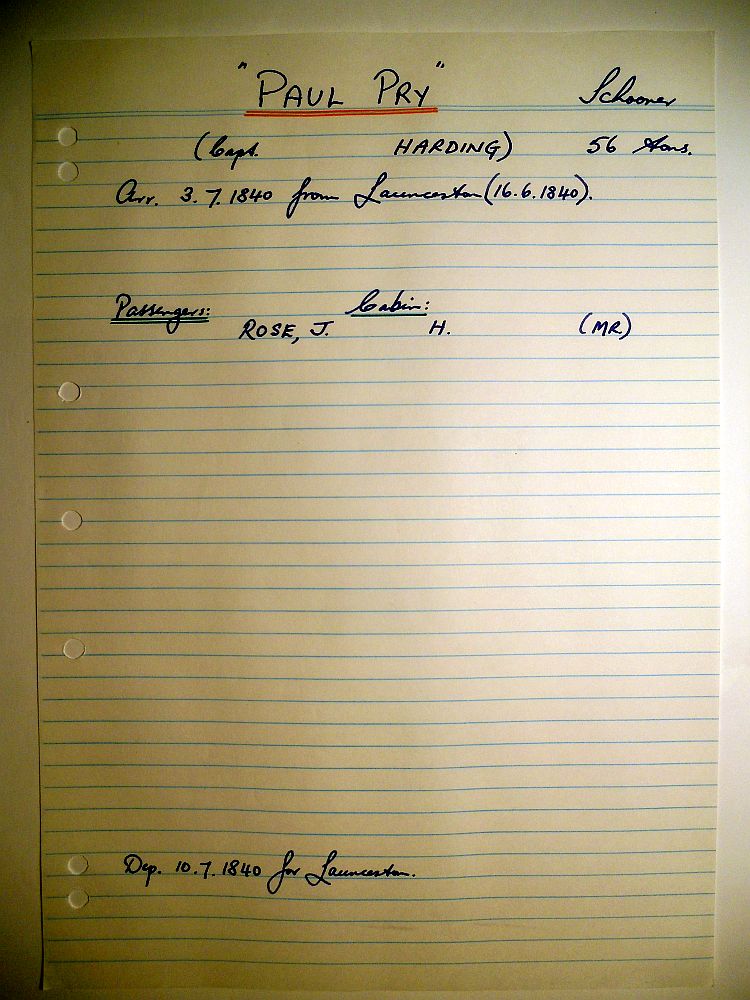 "PAUL PRY" Schooner
(Capt. HARDING) 56 tons.
Arr. 3.7.1840 from Launceston (16.6.1840).
Passengers: Cabin:
ROSE, J. H. (MR)
Dep. 10.7.1840 for Launceston.